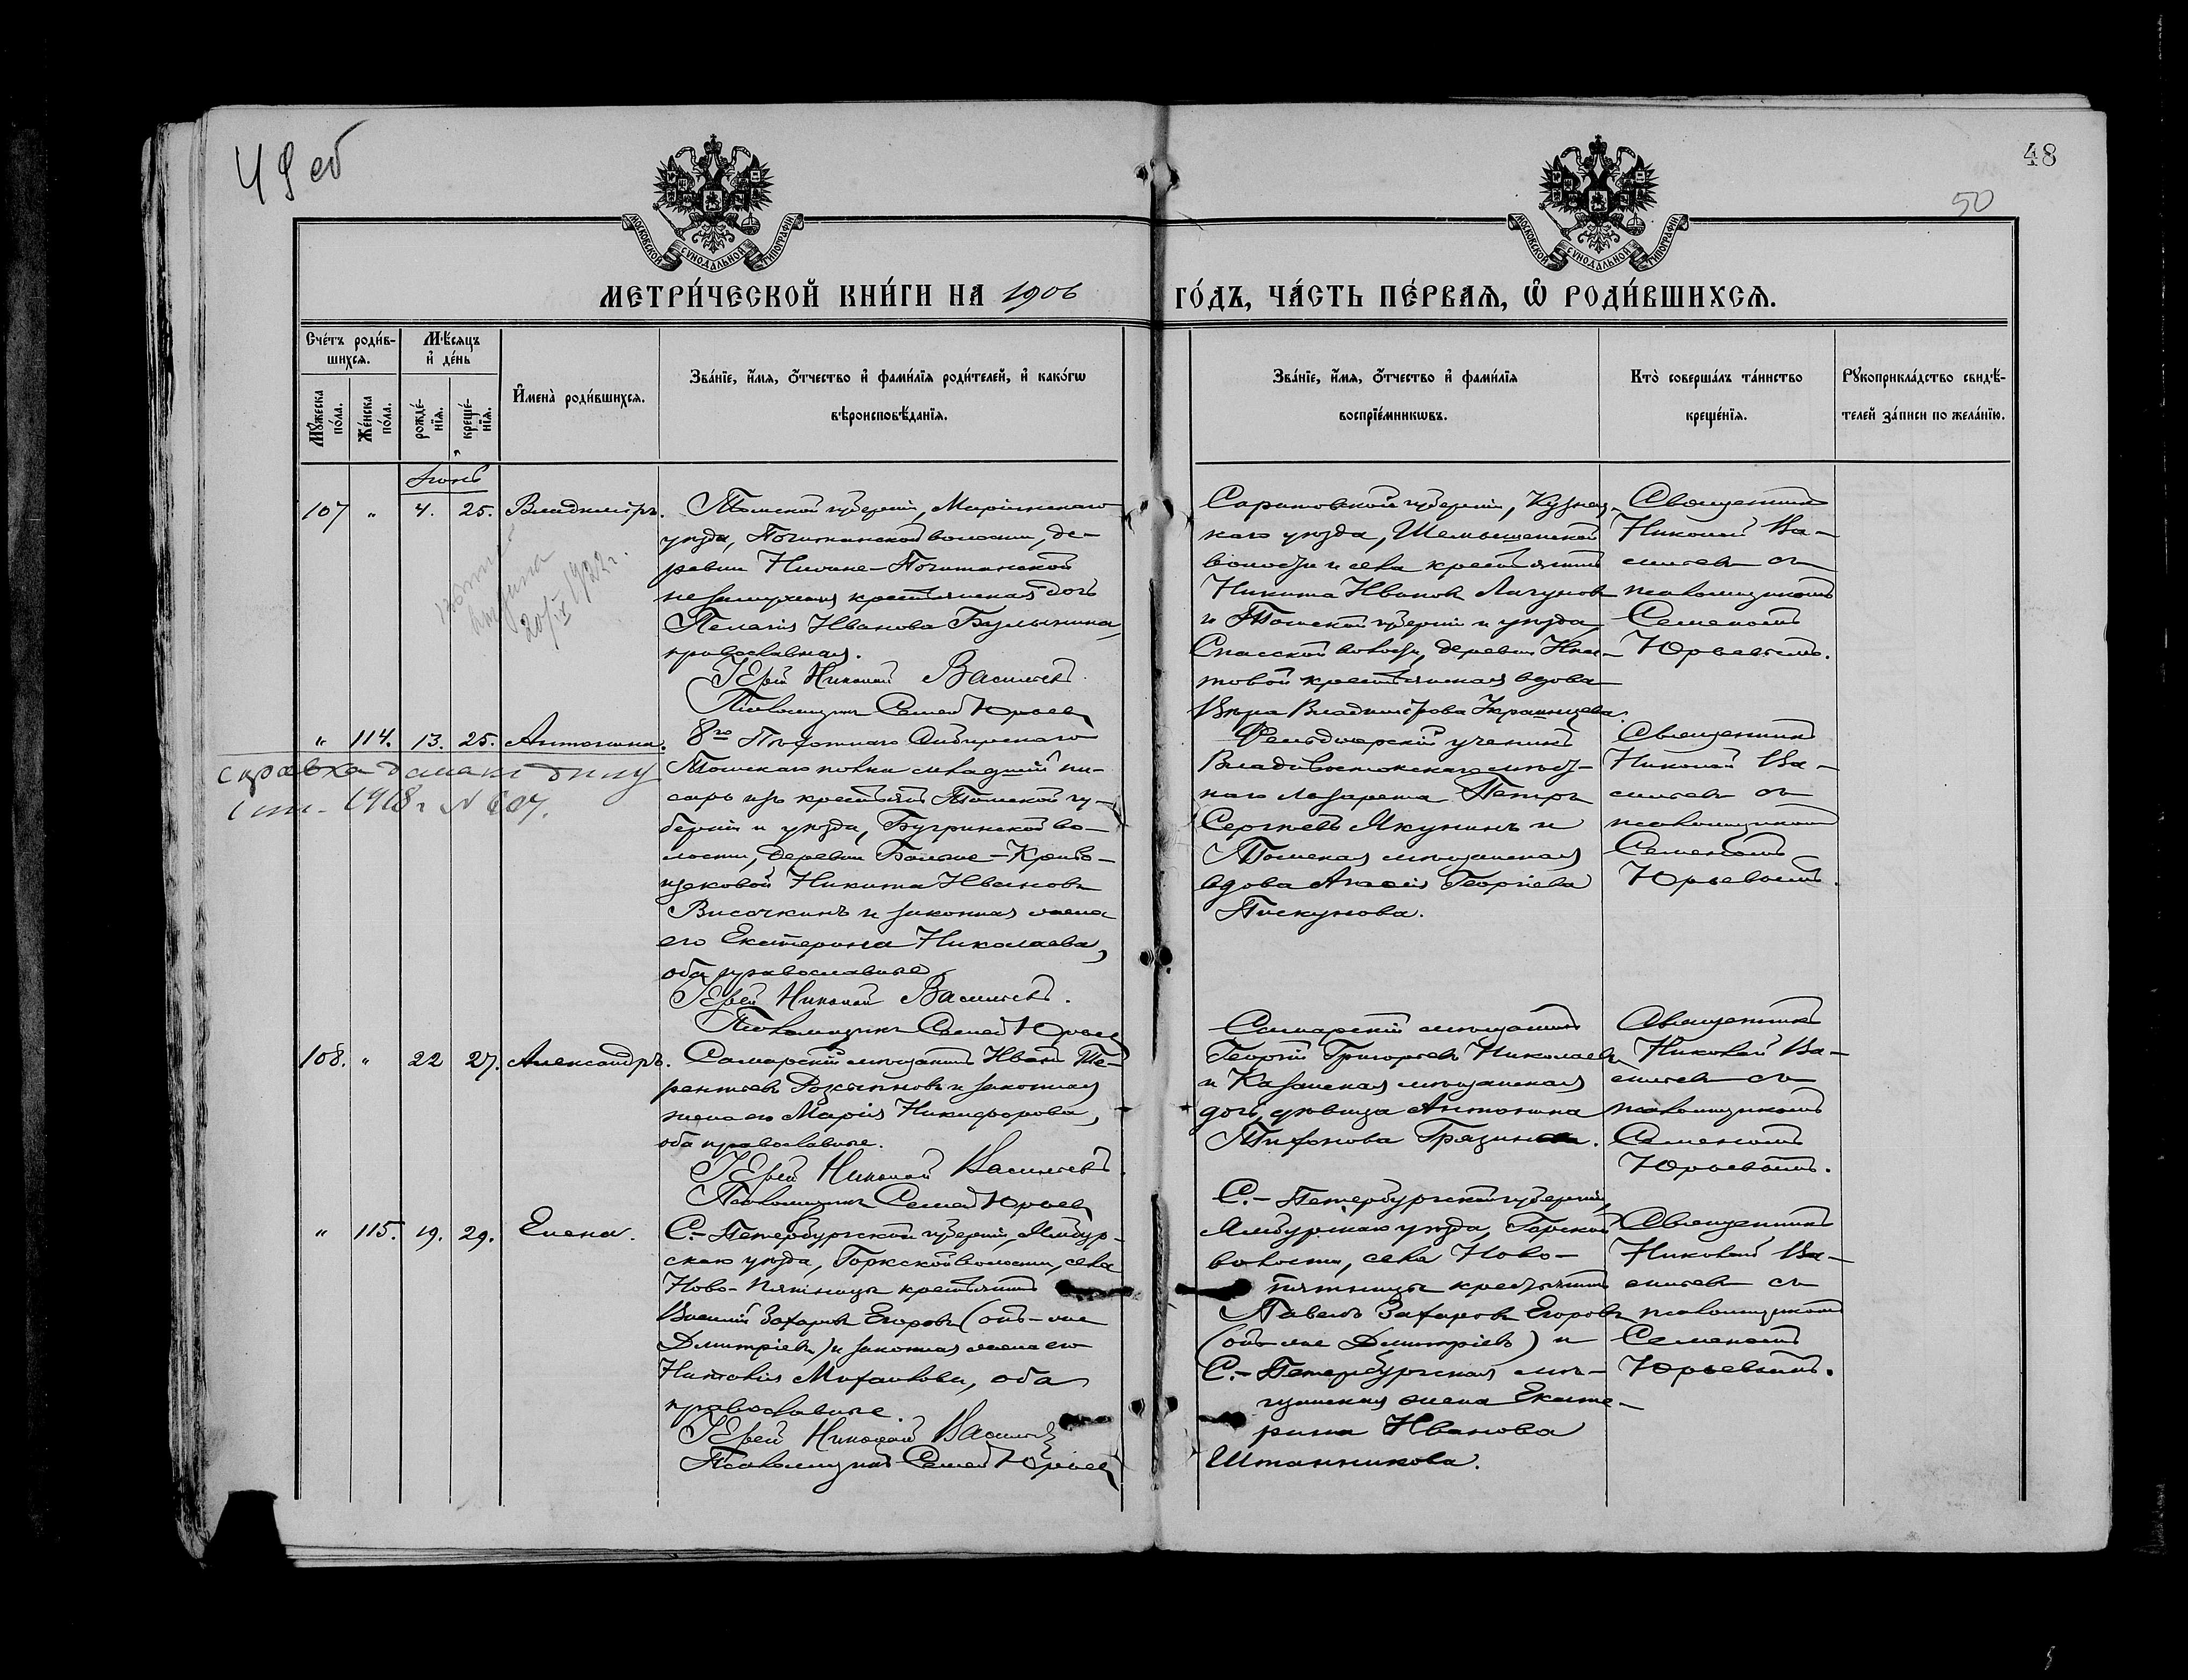 48
50
МОСКОВСКОЙ СѴНОДАЛЬНОЙ ТИПОГРАФІИ
МОСКОВСКОЙ СѴНОДАЛЬНОЙ ТИПОГРАФІИ
МЕТРИ́ЧЕСКОЙ КНИ́ГИ НА 1906 ГО́ДЪ, ЧА́СТЬ ПЕ́РВАѦ, Ѡ҆ РОДИ́ВШИХСѦ.
Сче́тъ роди́в-
шихсѧ.
Мѣ́сѧцъ
и҆ де́нь
Мꙋ́жеска
по́ла.
Же́нска
по́ла.
рожде́-
нїѧ.
креще́-
нїѧ.
И҆мена̀ роди́вшихсѧ.
Зва́нїе, и҆́мѧ, ѻ҆́тчество и҆ фами́лїѧ роди́телей, и҆ како́гѡ
вѣроисповѣ́данїѧ.
Зва́нїе, и҆́мѧ, ѻ҆́тчество и҆ фами́лїѧ
воспрїе́мникѡвъ.
Кто̀ соверша́лъ та́инство
креще́нїѧ.
Рꙋкоприкла́дство свидѣ́-
телей за́писи по жела́нїю.
Іюнь
107 " 4. 25. Владиміръ.
Томской губерніи, Маріинскаго
уѣзда, Почитанской волости, де-
ревни Нижне-Почитанской
незамужняя крестьянская дочь
Пелагія Иванова Булыкина,
православная.
Іерей Николай Васильевъ.
Псаломщикъ Семенъ Юрьевъ
Саратовской губерніи, Кузнец-
каго уѣзда, Шемышейской
волости и села крестьянинъ
Никита Ивановъ Лагуновъ
и Томской губерніи и уѣзда,
Спасской волости, деревни
крестьянская вдова
Вѣра Владимірова
Священникъ
Николай Ва-
сильевъ съ
псаломщикомъ
Семеномъ
Юрьевымъ.
20/IV 1922 г.
" 114. 13. 25. Антонина.
справка
1918 г N 607.
8го Пѣхотнаго Сибирскаго
Томскаго полка младшій пи-
сарь изъ крестьянъ Томской гу-
берніи и уѣзда, Бугринской во-
лости, деревни Больше-Криво-
щековой Никита Ивановъ
Височкинъ и законная жена
его Екатерина Николаева,
оба православные
Іерей Николай Васильевъ.
Псаломщикъ Семенъ Юрьевъ
Фельдшерскій ученикъ
Владивостокскаго мѣст-
наго лазарета Петръ
Сергѣевъ Якунинъ и
Томская мѣщанская
вдова Георгіева
Пискунова.
Священникъ
Николай Ва-
сильевъ съ
псаломщикомъ
Семеномъ
Юрьевымъ.
108. " 22 27. Александръ.
Самарскій мѣщанинъ Иванъ Те-
рентьевъ и законная
жена его Марія Никифорова,
оба православные.
Іерей Николай Васильевъ.
Псаломщикъ Семенъ Юрьевъ
Самарскій мѣщанинъ
Георгій Григорьевъ Николаевъ
и Казанская мѣщанская
дочь, дѣвица Антонина
Тихонова
Священникъ
Николай Ва-
сильевъ съ
псаломщикомъ
Семеномъ
Юрьевымъ.
" 115. 19. 29. Елена.
С.-Петербургской губерніи, Ямбур-
скаго уѣзда, Горкской волости, села
Ново-Пятницы крестьянинъ
Василій Захаровъ Егоровъ (онъ-же
Дмитріевъ) и законная жена его
Михайлова, оба
православные.
Іерей Николай Васильевъ
Псаломщикъ Семенъ Юрьевъ
С.-Петербургской губерніи,
Ямбургскаго уѣзда, Горкской
волости, села Ново-
пятницы крестьянинъ
Павелъ Захаровъ Егоровъ
(онъ-же Дмитріевъ) и
С.-Петербургская мѣ-
щанская жена Екате-
рина Иванова
Штанникова.
Священникъ
Николай Ва-
сильевъ съ
псаломщикомъ
Семеномъ
Юрьевымъ.